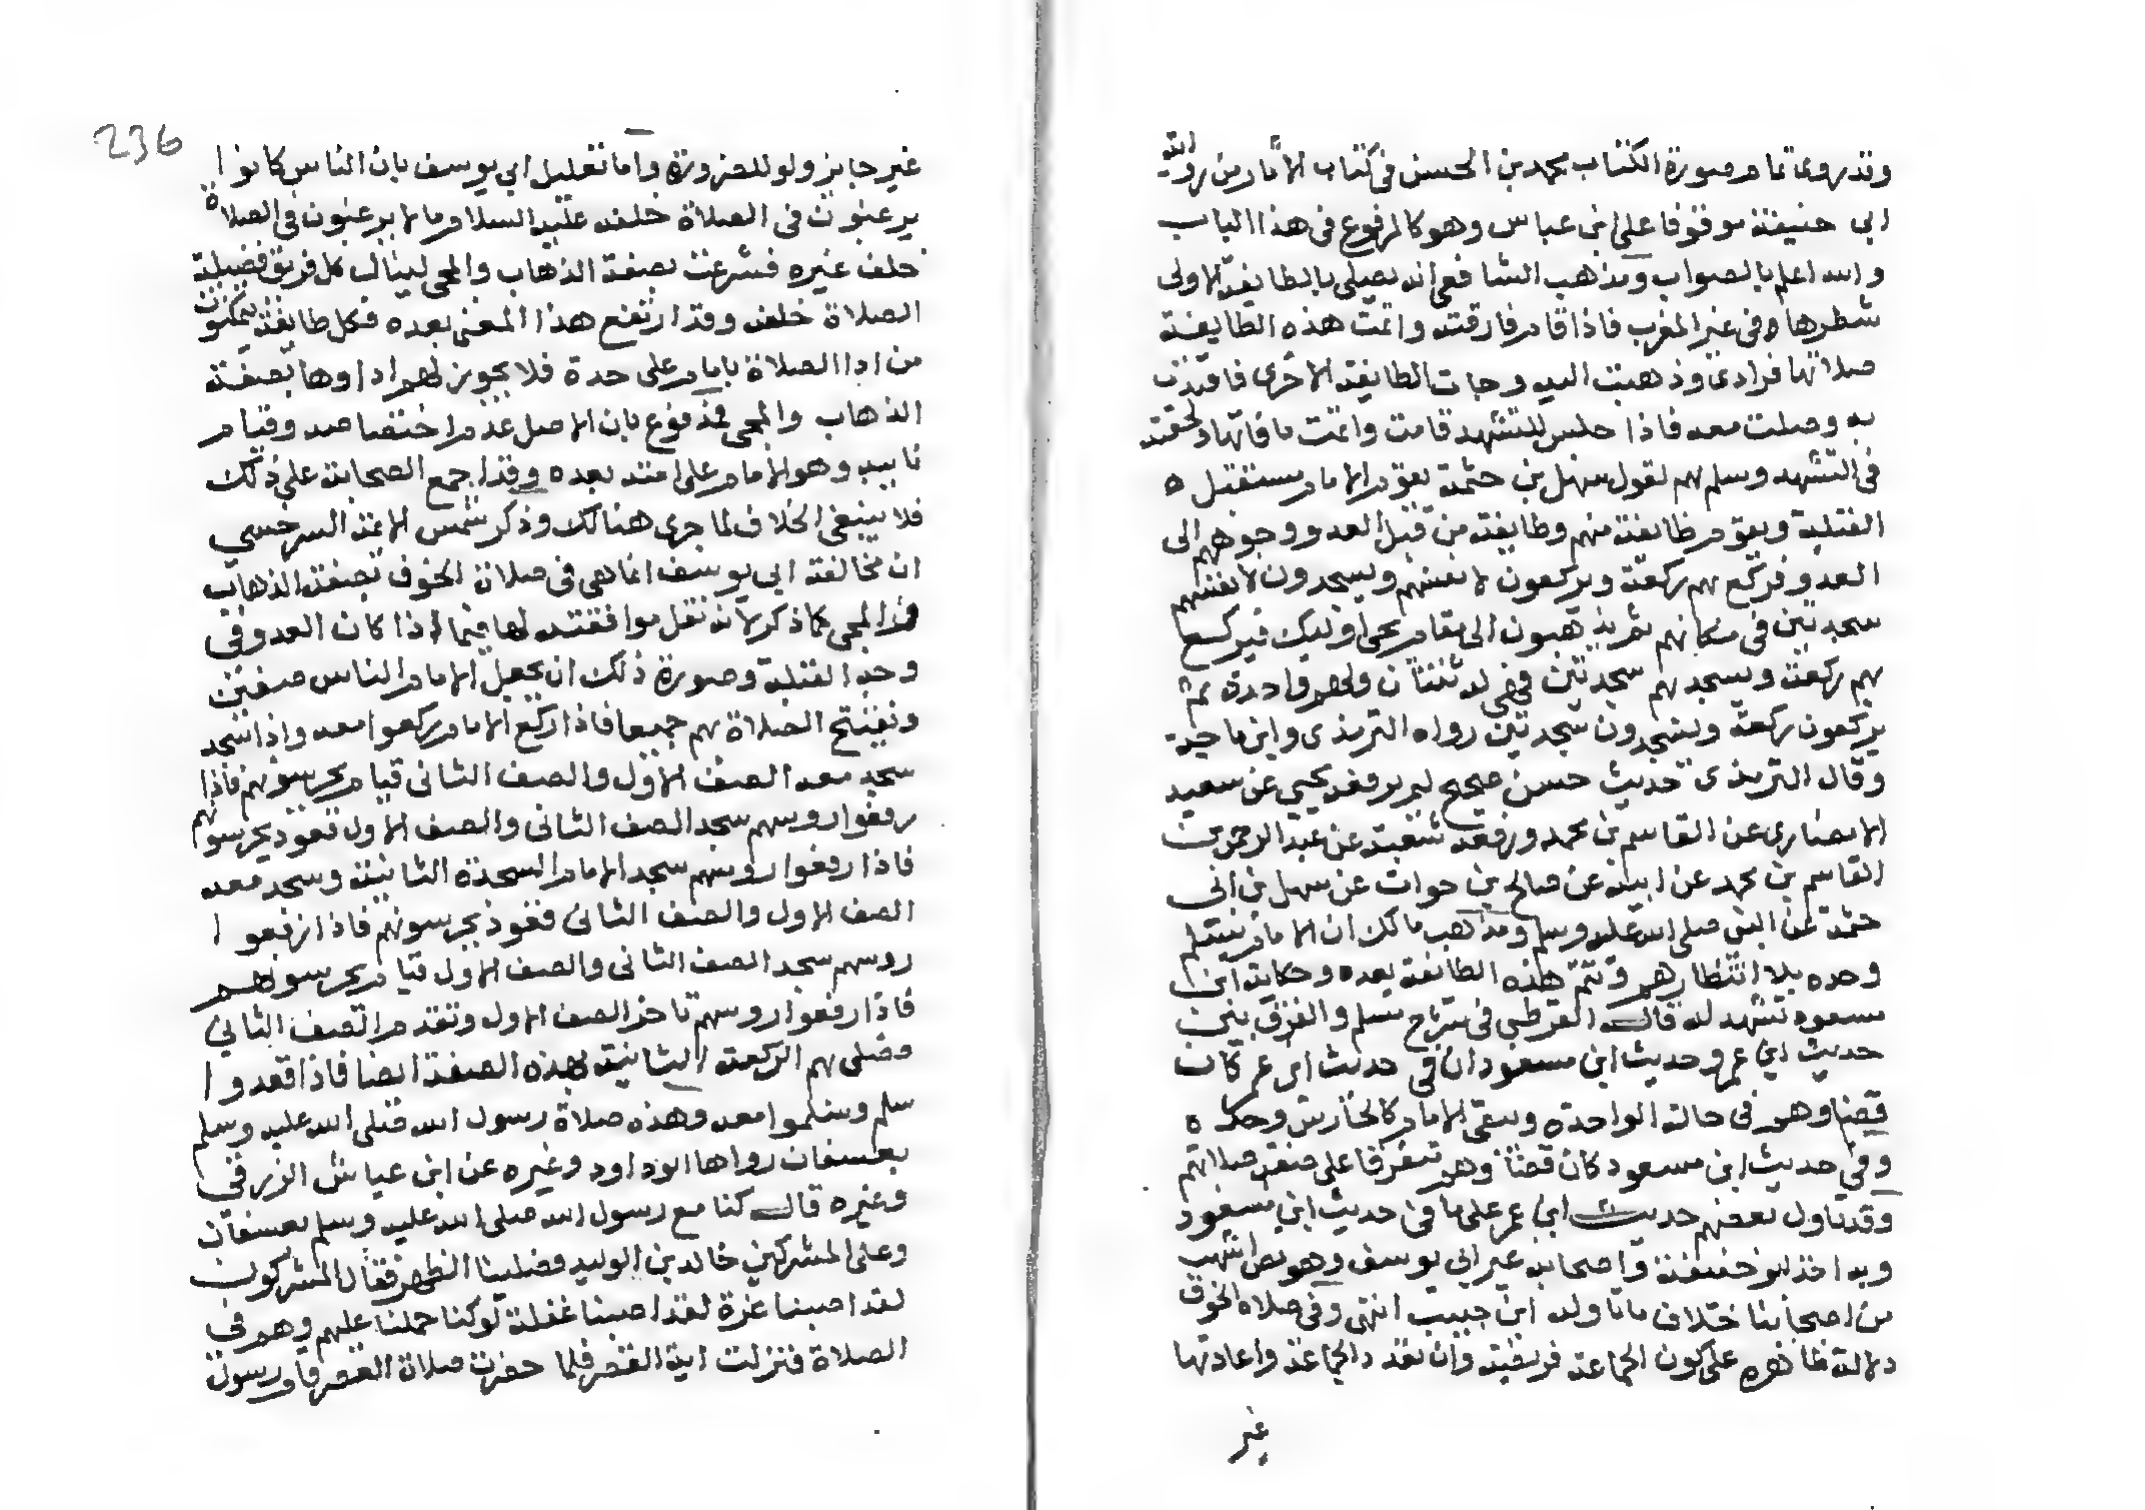 وقد روى تمام صورة الكتاب محمد بن الحسن في كتاب الاثار من رواية
ابى حنيفة موقوفا على ابن عباس وهو كالمرفوع في هذا الباب
والله اعلم بالصواب ومذهب الشافعي انه يصلى بالطايفة الاولى
شطرها وفى غير المغرب فاذا قام فارقته واتمت هذه الطايفة
صلاتها فرادى وذهبت اليه وجات الطايفة الاخرى فاقتدت
به وصلت معه فاذا جلس للتشهد قامت واتمت ما فاتها ولحقته
في التشهد وسلم بهم لقول سهل بن حثمة يقوم الامام مستقبل ه
القبلة ويقوم طايفة منهم وطايفة من قبل العدو ووجوههم الى
العدو فركع بهم ركعة ويركعون لانفسهم ويسجدون لانفسهم
سجدتين في مكانهم ثم يذهبون الى مقام اوليك فيركع
بهم ركعة ويسجد بهم سجدتين فهي له ثنتان ولهم واحدة ثم
يركعون ركعة ويسجدون سجدتين رواه الترمذى وابن ماجة
وقال الترمذى حديث حسن صحيح لم يرفعه يحيى عن سعيد
الانصارى عن القاسم بن محمد ورفعه شعبة عن عبد الرحمن بن
القاسم بن محمد عن ابيه عن صالح بن خوات عن سهل بن ابى
حثمة عن النبي صلى الله عليه وسلم ومذهب مالك ان الامام يسلم
وحده بلا انتظارهم وتتم هذه الطائفة بعده وحكاية ابن
مسعود تشهد له قال القرطبي في شرح مسلم والفرق بين
حديث ابن عمر وحديث ابن مسعود ان في حديث ابن عمر كان
قضاوهم في حالة الواحدة ويبقى الامام كالحارس وحده ه
وفي حديث ابن مسعود كان قضاوهم متفرقا على صفة صلاتهم
وقد تاول بعضهم حديث ابن عمر على ما في حديث ابن مسعود
وبه اخذ ابو حنيفة واصحابه غير ابى يوسف وهو نص اشهب
من اصحابنا خلاف ما تاوله ابن حبيب انتهى وفي صلاة الخوف
دلالة ظاهرة على كون الجماعة فريضة وان تعدد الجماعة واعادتها
غير
236
غير جايز ولو للضرورة واما تعليل ابي يوسف بان الناس كانوا
يرغبون في الصلاة خلفه عليه السلام ما لا يرغبون في الصلاة
خلف غيره فشرعت بصفة الذهاب والمجي لينال كل فريق فضيلة
الصلاة خلفه وقد ارتفع هذا المعنى بعده فكل طايفة يتمكنون
من ادا الصلاة بامام على حدة فلا يجوز لهم اداوها بصفة
الذهاب والمجي فمدفوع بان الاصل عدم اختصاصه وقيام
نايبه وهو الامام على امته بعده وقد اجمع الصحابة على ذلك
فلا ينبغي الخلاف لما جرى هنالك وذكر شمس الائمة السرخسي
ان مخالفة ابي يوسف انما هى في صلاة الخوف بصفة الذهاب
والمجي كما ذكر لانه نقل موافقته لها فيما اذا كان العدو في
وجه القبلة وصورة ذلك ان يجعل الامام الناس صفين
ويفتتح الصلاة بهم جميعا فاذا ركع الامام ركعوا معه واذا سجد
سجد معه الصف الاول والصف الثاني قيام يحرسونهم فاذا
رفعوا روسهم سجد الصف الثاني والصف الاول قعود يحرسونهم
فاذا رفعوا روسهم سجد الامام السجدة الثانية وسجد معه
الصف الاول والصف الثاني قعود يحرسونهم فاذا رفعوا
روسهم سجد الصف الثاني والصف الاول قيام يحرسونهم
فاذا رفعوا روسهم تاخر الصف الاول وتقدم الصف الثاني
فصلى بهم الركعة الثانية بهذه الصفة ايضا فاذا قعدوا
سلم وسلموا معه وهذه صلاة رسول الله صلى الله عليه وسلم
بعسفان رواها ابو داود وغيره عن ابن عياش الزرقي
وغيره قال كنا مع رسول الله صلى الله عليه وسلم بعسفان
وعلى المشركين خالد بن الوليد فصلينا الظهر فقال المشركون
لقد اصبنا غرة لقد اصبنا غفلة لو كنا حملنا عليهم وهم في
الصلاة فنزلت اية القصر فلما حضرت صلاة العصر قام رسول